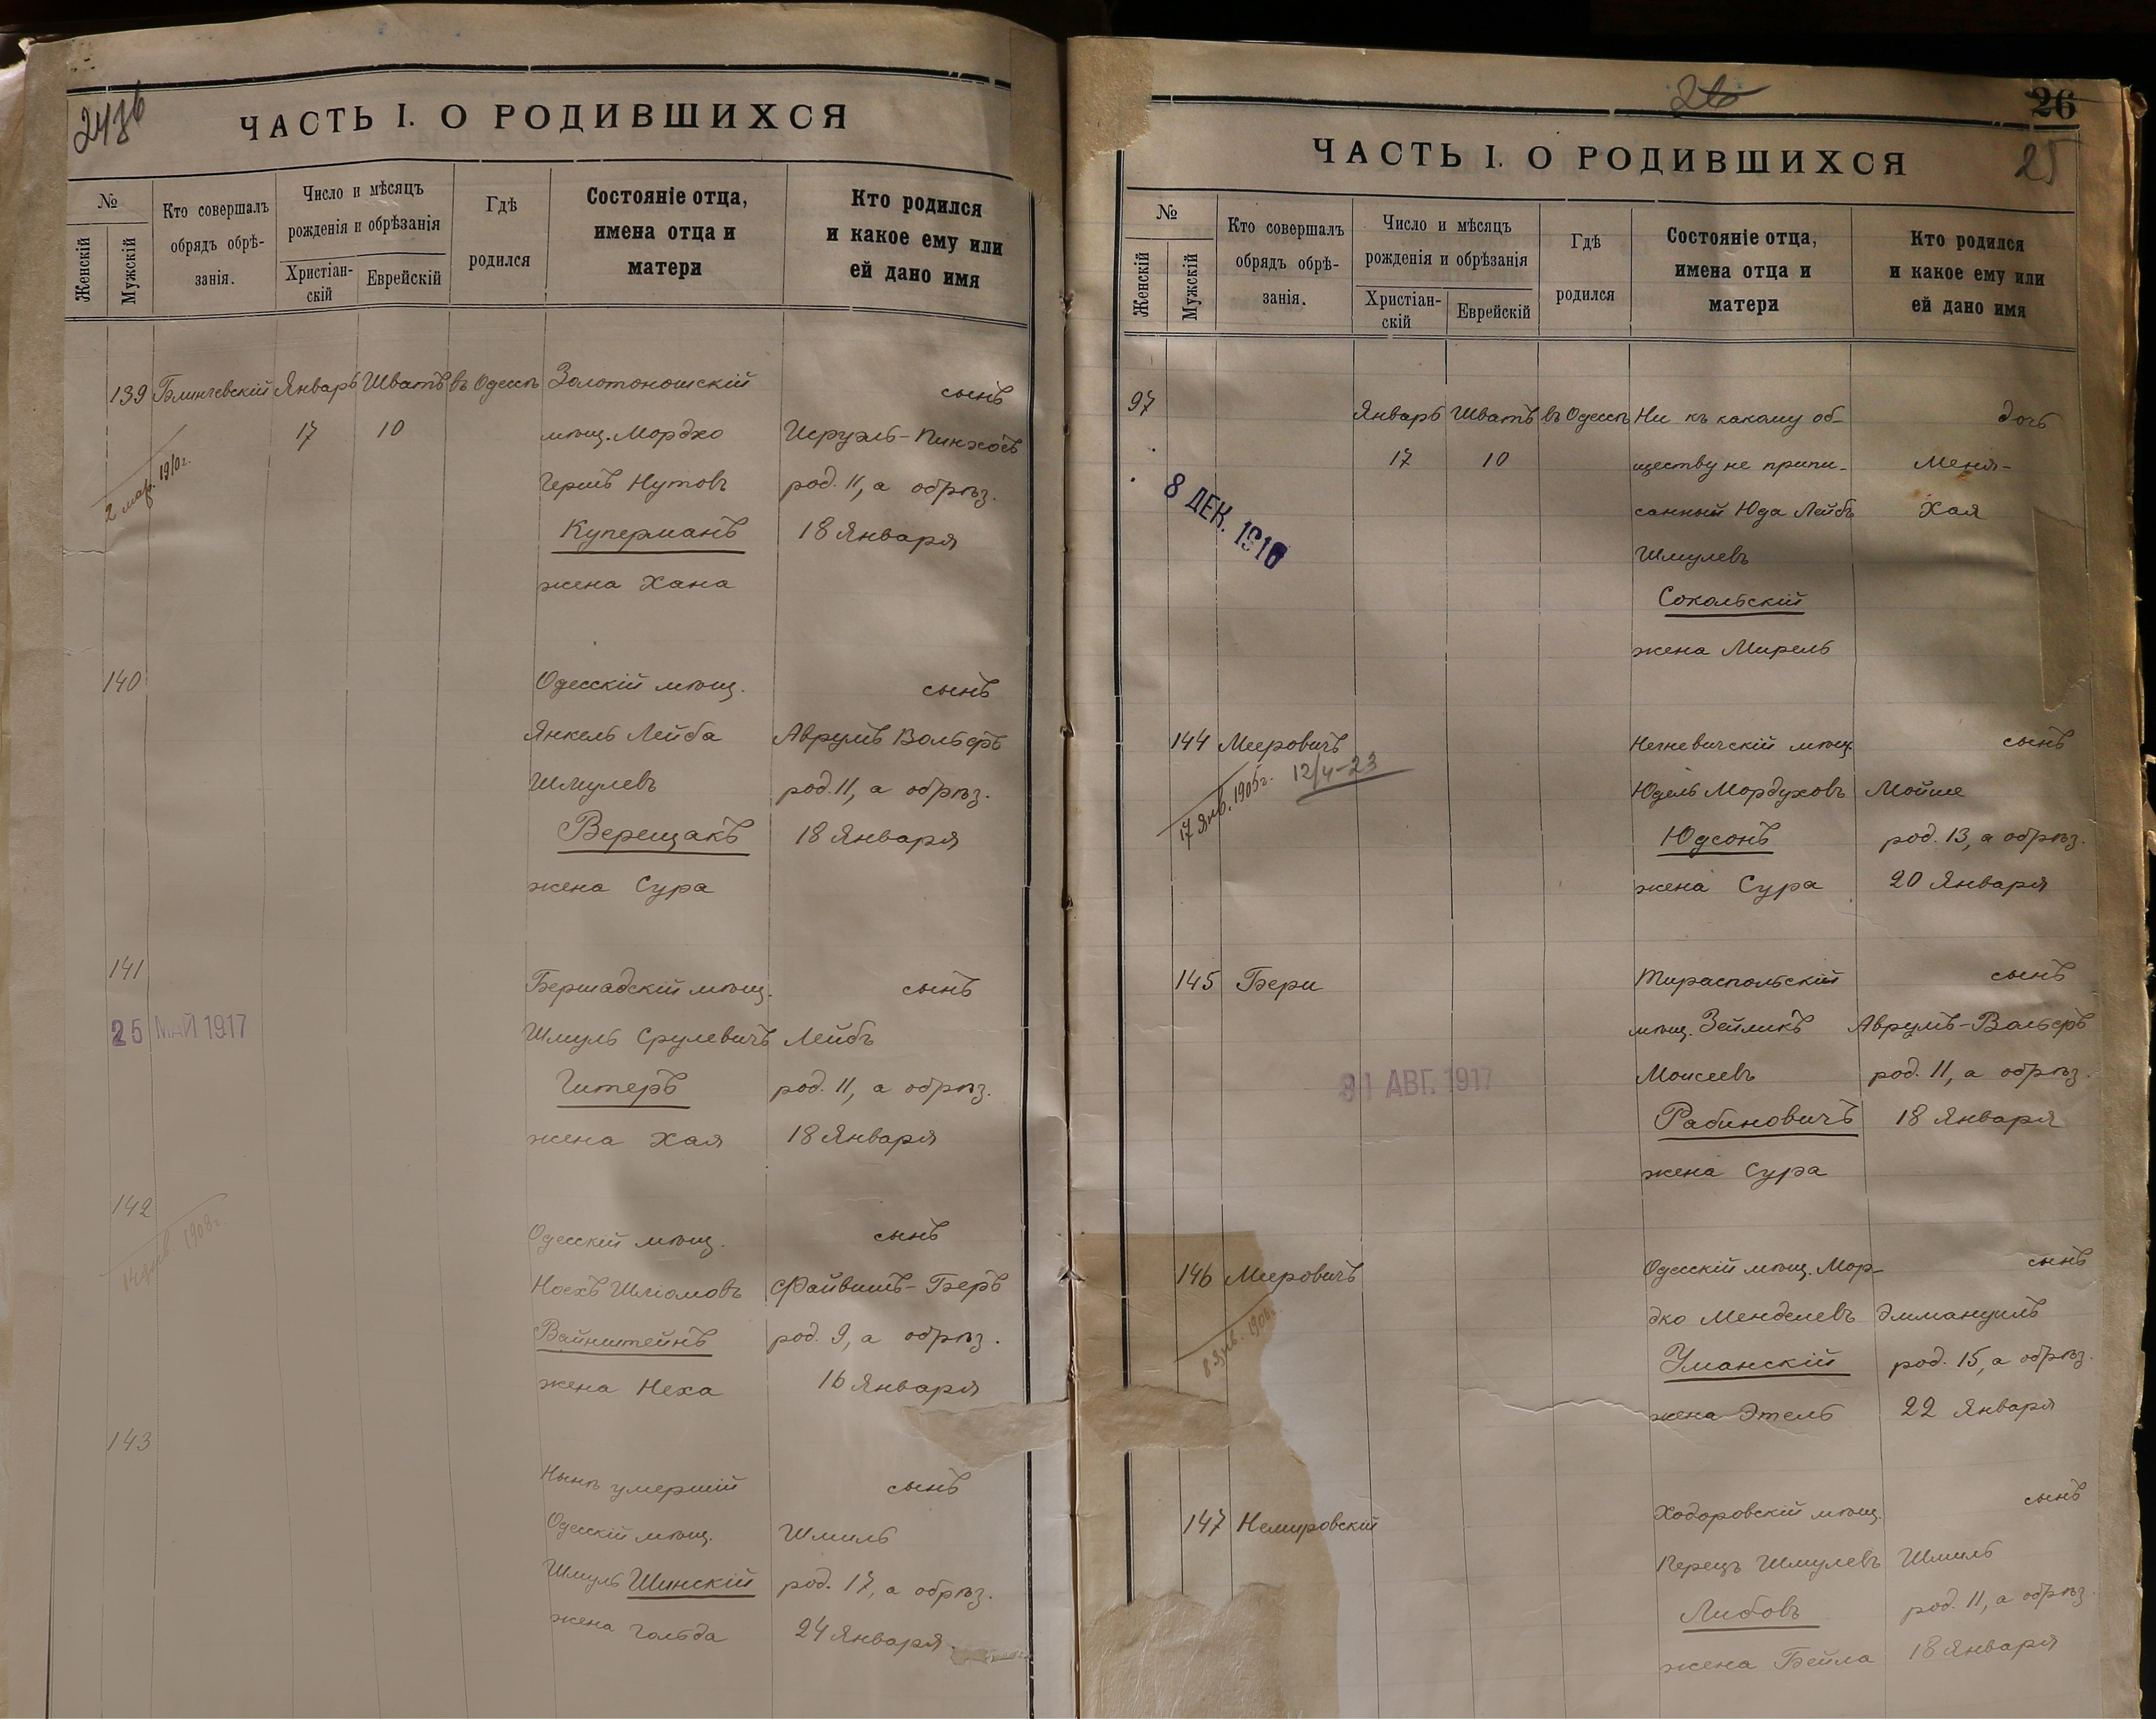 24об
ЧАСТЬ I. О РОДИВШИХСЯ
№
Женскій
Мужскій
Кто совершалъ
обрядъ обрѣ-
занія.
Число и мѣсяцъ
рожденія и обрѣзанія
Христіан-
скій
Еврейскій
Гдѣ
родился
Состояніе отца,
имена отца и
матери
Кто родился
и какое ему или
ей дано имя
139 Январь Шватъ въ Одессѣ Золотоношскій сынъ
17 10 мѣщ. Мордко Исруэль-Пинхосъ
2 мар. 1910 г.
Гершъ Нутовъ род. 11, а обрѣз.
Куперманъ 18 Января
жена Хана
140 Одесскій мѣщ. сынъ
Янкель Лейба Аврумъ Вольфъ
Шмулевъ род. 11, а обрѣз.
Верещакъ 18 Января
жена Сура
141 Бершадскій мѣщ. сынъ
25 МАЙ 1917
Шмуль Срулевичъ Лейбъ
Гитеръ род. 11, а обрѣз.
жена Хая 18 Января
142 Одесскій мѣщ. сынъ
1908 г.
Носхъ Шлiомовъ Файвишъ-Беръ
Вайнштейнъ род. 9, а обрѣз.
жена Неха 16 Января
143 Нынѣ умершій сынъ
Одесскій мѣщ. Шмиль
Шмуль Шинскій род. 17, а обрѣз.
жена Гольда 24 Января.
26
26
25
ЧАСТЬ I. О РОДИВШИХСЯ
№
Женскій
Мужскій
Кто совершалъ
обрядъ обрѣ-
занія.
Число и мѣсяцъ
рожденія и обрѣзанія
Христіан-
скій
Еврейскій
Гдѣ
родился
Состояніе отца,
имена отца и
матери
Кто родился
и какое ему или
ей дано имя
97 Январь Шватъ въ Одессѣ Ни къ какому об- дочь
17 10 ществу не припи- Меня-
8 ДЕК. 1916
санный Юда Лейбъ Хая
Шмулевъ
Сокольскій
жена Мирель
144 Мееровичъ Негневичскій мѣщ. сынъ
17 Янв. 1905 г. 12/4-23
Юдель Мордуховъ Мойше
Юдсонъ род. 13, а обрѣз.
жена Сура 20 Января
145 Бери Тираспольскій сынъ
мѣщ. Зейликъ Аврумъ-Вольфъ
31 АВГ. 1917
Моисеевъ род. 11, а обрѣз.
Рабиновичъ 18 Января
жена Сура
146 Мееровичъ Одесскій мѣщ. Мор- сынъ
8 Янв. 1908 г.
дко Менделевъ Эммануилъ
Уманскій род. 15, а обрѣз.
жена Этель 22 Января
147 Немировскій Ходоровскій мѣщ. сынъ
Перецъ Шмулевъ Шмиль
Либовъ род. 11, а обрѣз.
жена Бейла 18 Января